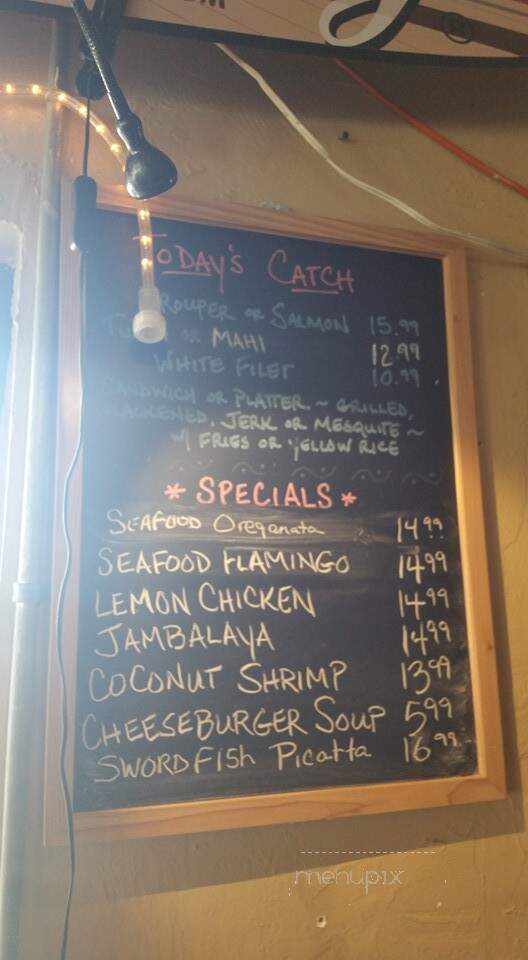 TODAY'S CATCH
ROUPER OR SALMON 15.99
OR MAHI 12.99
WHITE FILET 10.99
SANDWICH OR PLATTER ~ GRILLED,
BLACKENED, JERK OR MESQUITE ~
W/ FRIES OR YELLOW RICE
* SPECIALS *
SEAFOOD Oreganata 14.99
SEAFOOD FLAMINGO 14.99
LEMON CHICKEN 14.99
JAMBALAYA 14.99
COCONUT SHRIMP 13.99
CHEESEBURGER SOUP 5.99
SWORDFISh Picatta 16.99
menupix